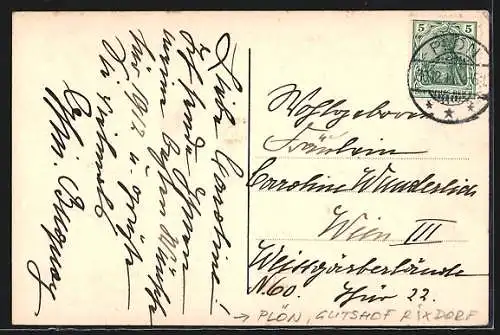 Liebe Caroline!
sende Ihnen
meine besten Wünsche
1912 u. grüße
Sie vielmals
5 5
PLÖN
Wohlgeboren
Fräulein
Caroline Wunderlich
Wien III
Weissgärberlände
N. 60. Thür 22.
→ PLÖN, GUTSHOF RIXDORF